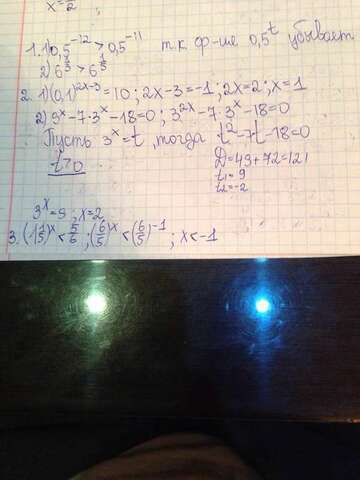 x = 2
1. 1) 0,5^-12 > 0,5^-11 т.к ф-ше 0,5^t убывает
2) 6^(1/3) > 6^(1/5)
2. 1) (0,1)^(2x-3) = 10; 2x-3=-1; 2x=2; x=1
2) 9^x - 7·3^x - 18=0; 3^2x - 7·3^x - 18=0
Пусть 3^x = t, тогда t^2 - 7t - 18=0
t>0
D = 49 + 72 = 121
t1 = 9
t2 = -2
3^x = 9, x=2
3. (1 1/5)^x < 5/6; (6/5)^x < (6/5)^-1; x < -1